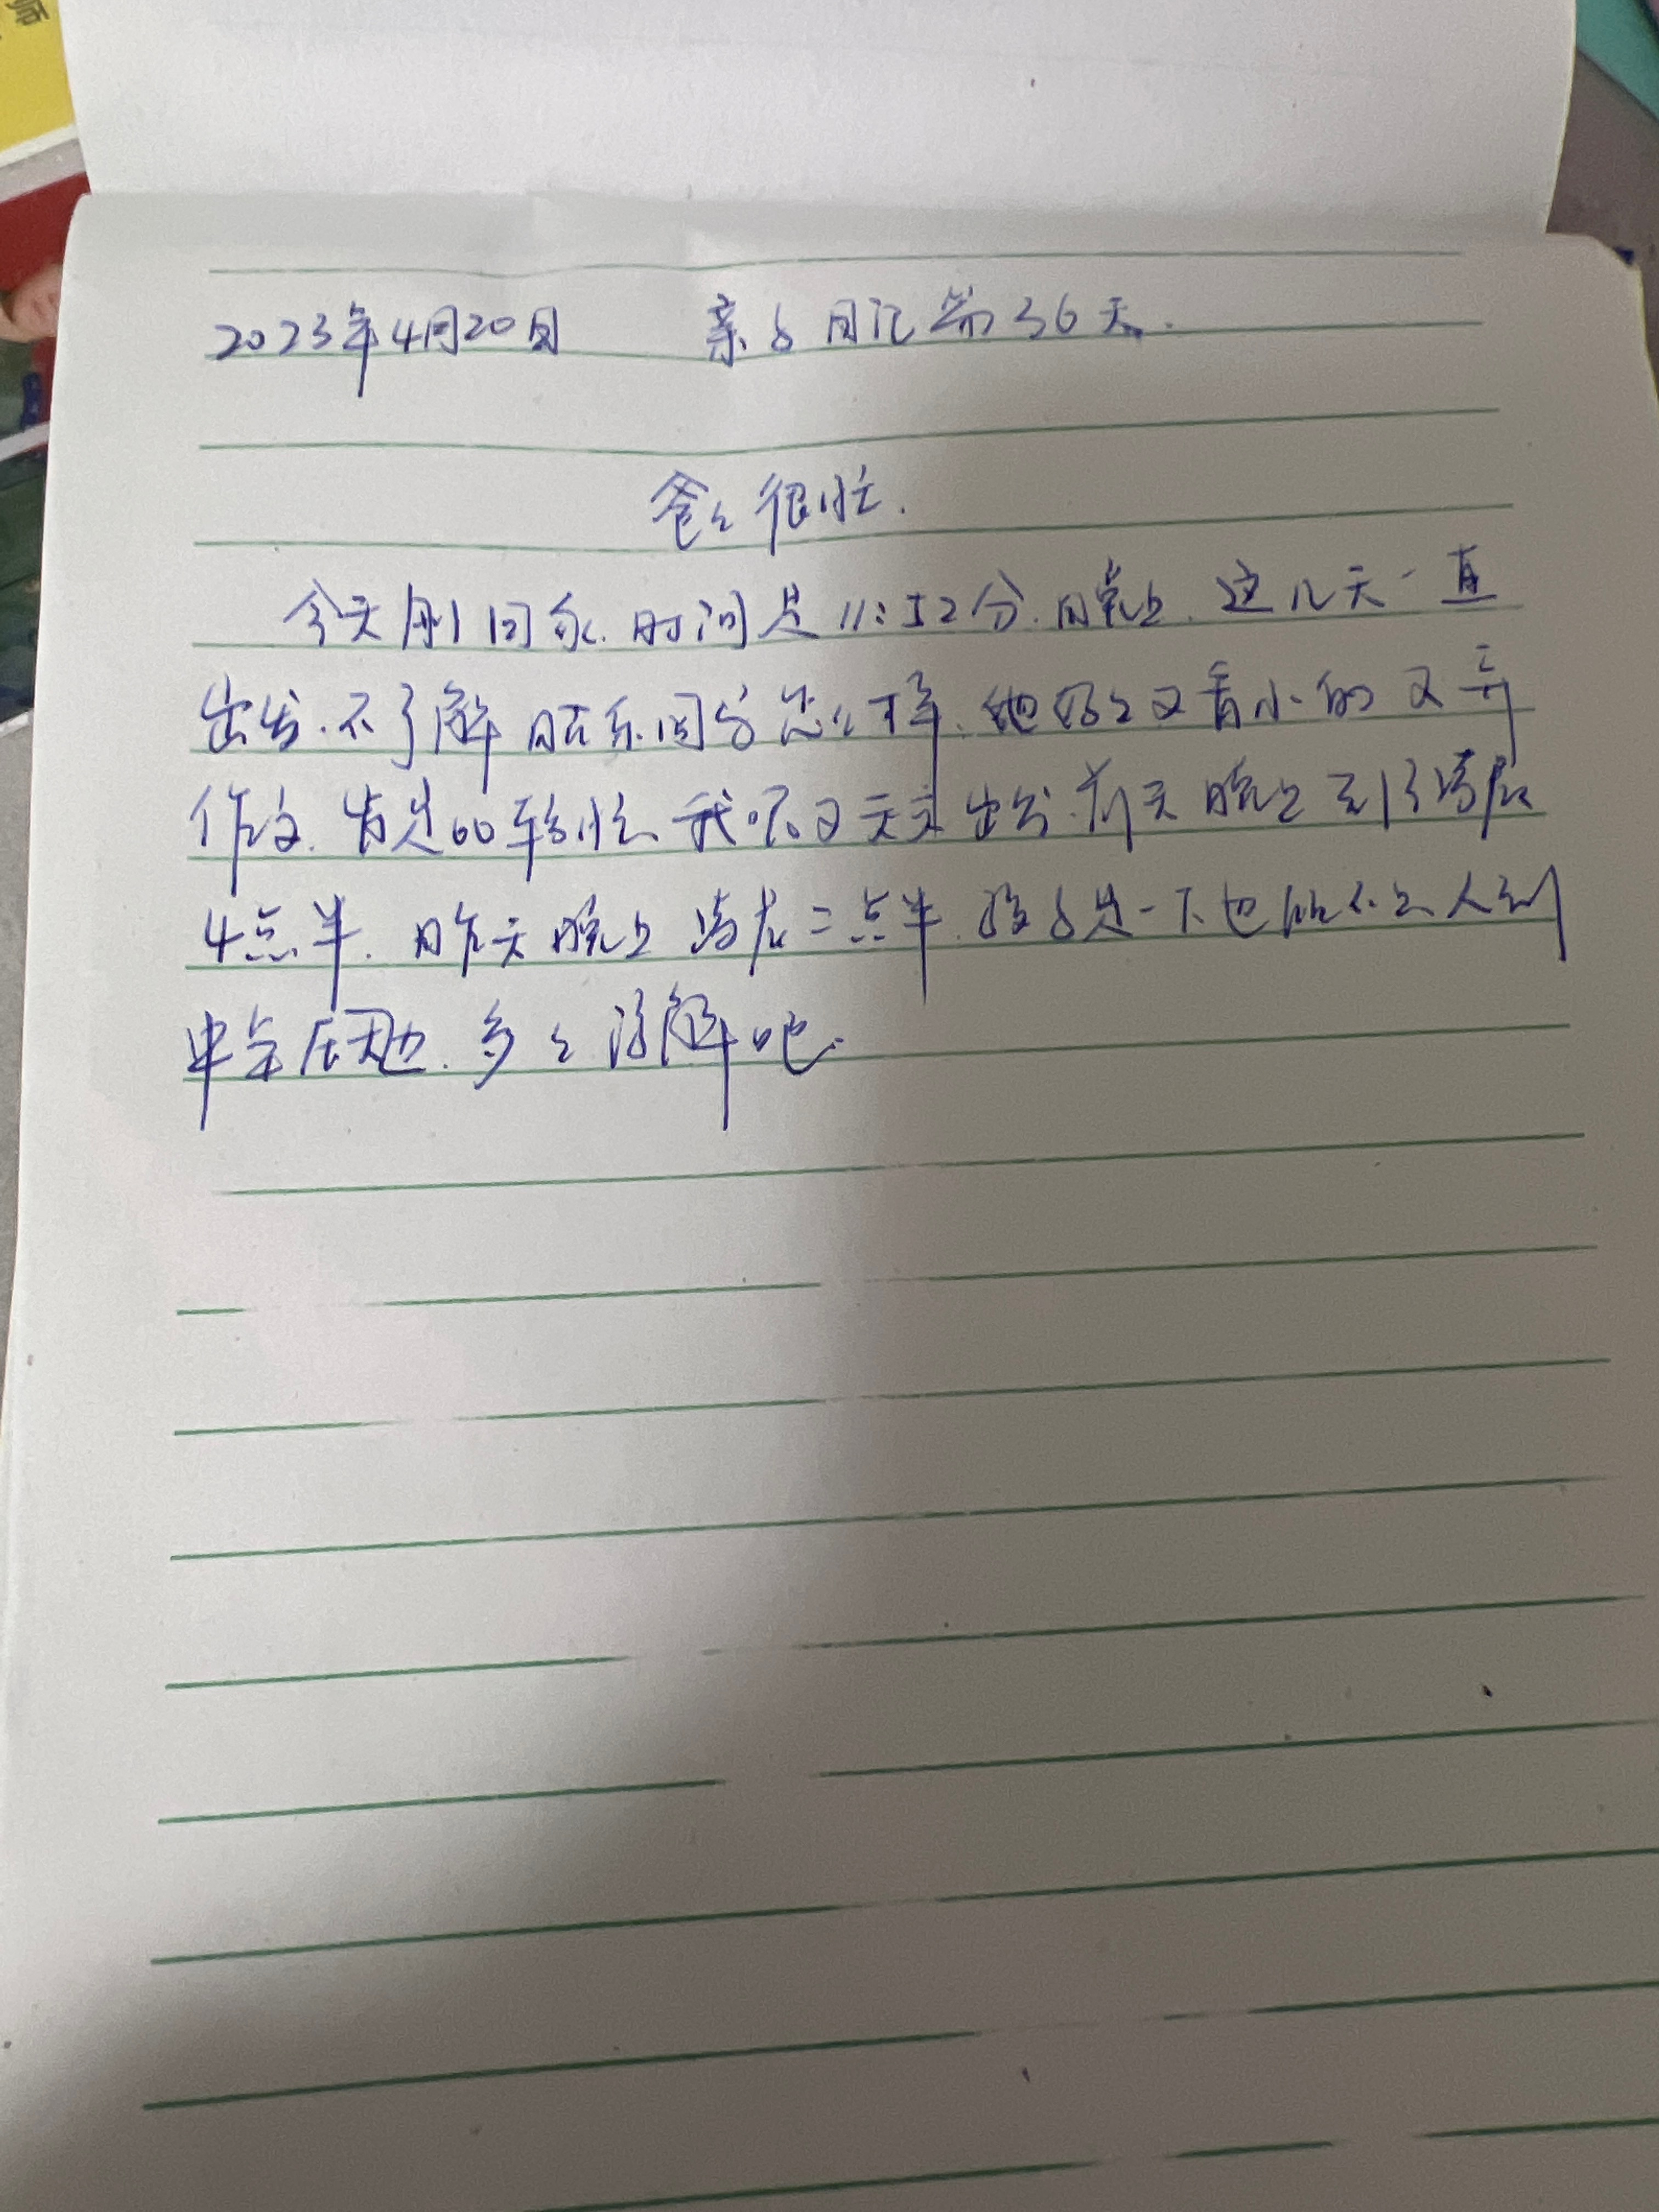 师
2023年4月20日 亲子日记第36天.
爸爸很忙.
今天刚回家.时间是11:52分.晚上.这几天一直
出发.不了解 怎么样.她妈妈又看小的又弄
作文.肯定60 忙.我呢又天天出发.前天晚上到了凌晨
4点半.昨天晚上凌晨二点半.孩子是一下也 人到
中年压力.多多谅解吧.